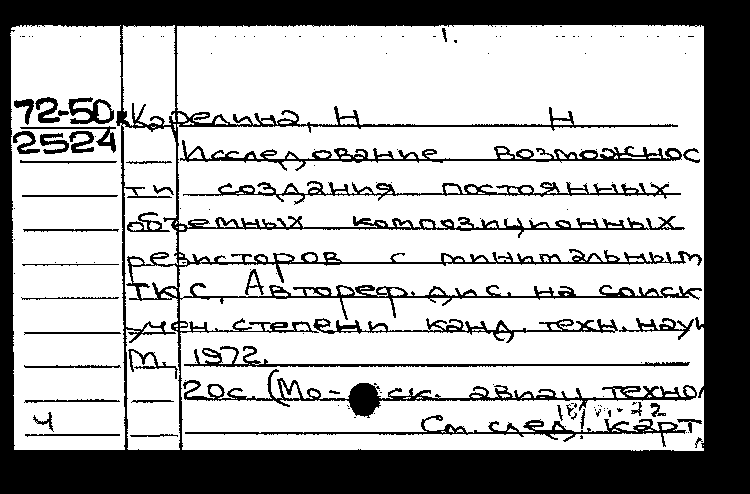 1.
72-50
2524
Карелина, Н Н
Исследование возможнос
ти создания постоянных
объемных композиционных
резисторов с минимальным
ТКС. Автореф. дис. на соиск
учен. степени канд. техн. наук
М. 1972.
20с. (Мо- ск. авиац. техно
ч См. след. карт